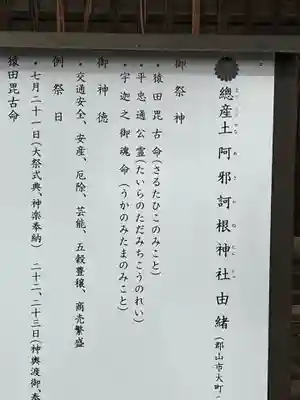 總産土 阿邪訶根神社 由緒 (郡山市大町
御祭神
・猿田毘古命(さるたひこのみこと)
・平忠通公霊(たいらのただみちこうのれい)
・宇迦之御魂命(うかのみたまのみこと)
御神徳
・交通安全、安産、厄除、芸能、五穀豊穣、商売繁盛
例祭日
・七月二十一日(大祭式典、神楽奉納) 二十二、二十三日(神輿渡御、奉
猿田毘古命